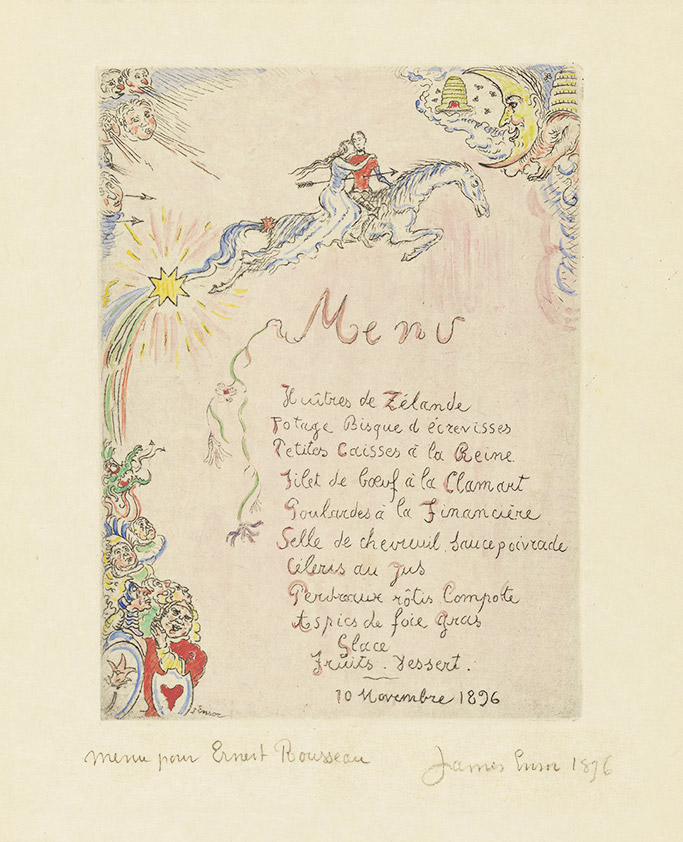 Menu
Huîtres de Zélande
Potage Bisque d'écrevisses
Petites Caisses à la Reine
Filet de bœuf à la Clamart
Poulardes à la Financière
Selle de chevreuil. Sauce poivrade
Céleris au Jus
Perdreaux rôtis Compote
Aspics de foie Gras
Glace
Fruits. Dessert.
10 Novembre 1896
J Ensor
menu pour Ernest Rousseau
James Ensor 1896